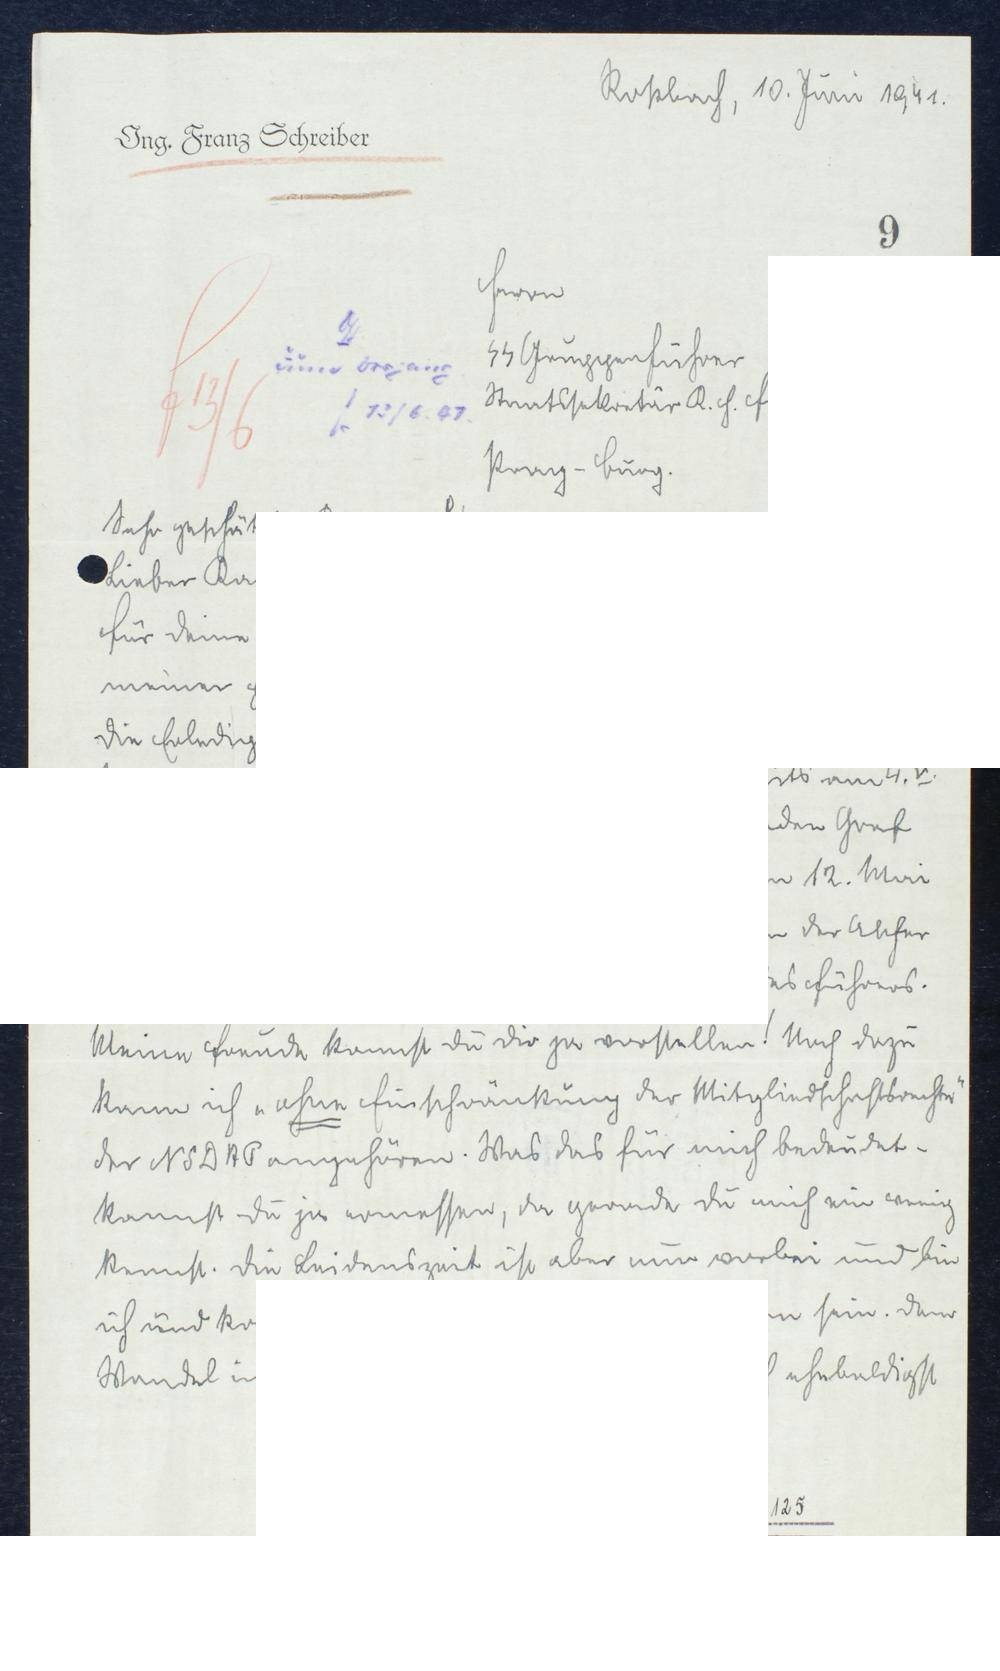 Roßbach, 10. Juni 1941.
Ing. Franz Schreiber
9
Herrn
SS Gruppenführer
Staatssekretär K. H. F
Prag - Burg.
13/6
13/6. 41.
Sehr geschät
Lieber Ka
für deine
meiner g
die Erledig
its am 4. V.
den Graf
n 12. Mai
der Ascher
es Führers.
Meine Freude kannst du dir ja vorstellen! Noch dazu
kann ich „ohne Einschränkung der Mitgliedschaftsrechte"
der NSDAP angehören. Was das für mich bedeudet -
kannst du ja ermessen, da gerade du mich ein wenig
kennst. Die Leidenszeit ist aber nun vorbei und bin
ich und ko
n sein. Dem
Wandel in
ehebaldigst
125